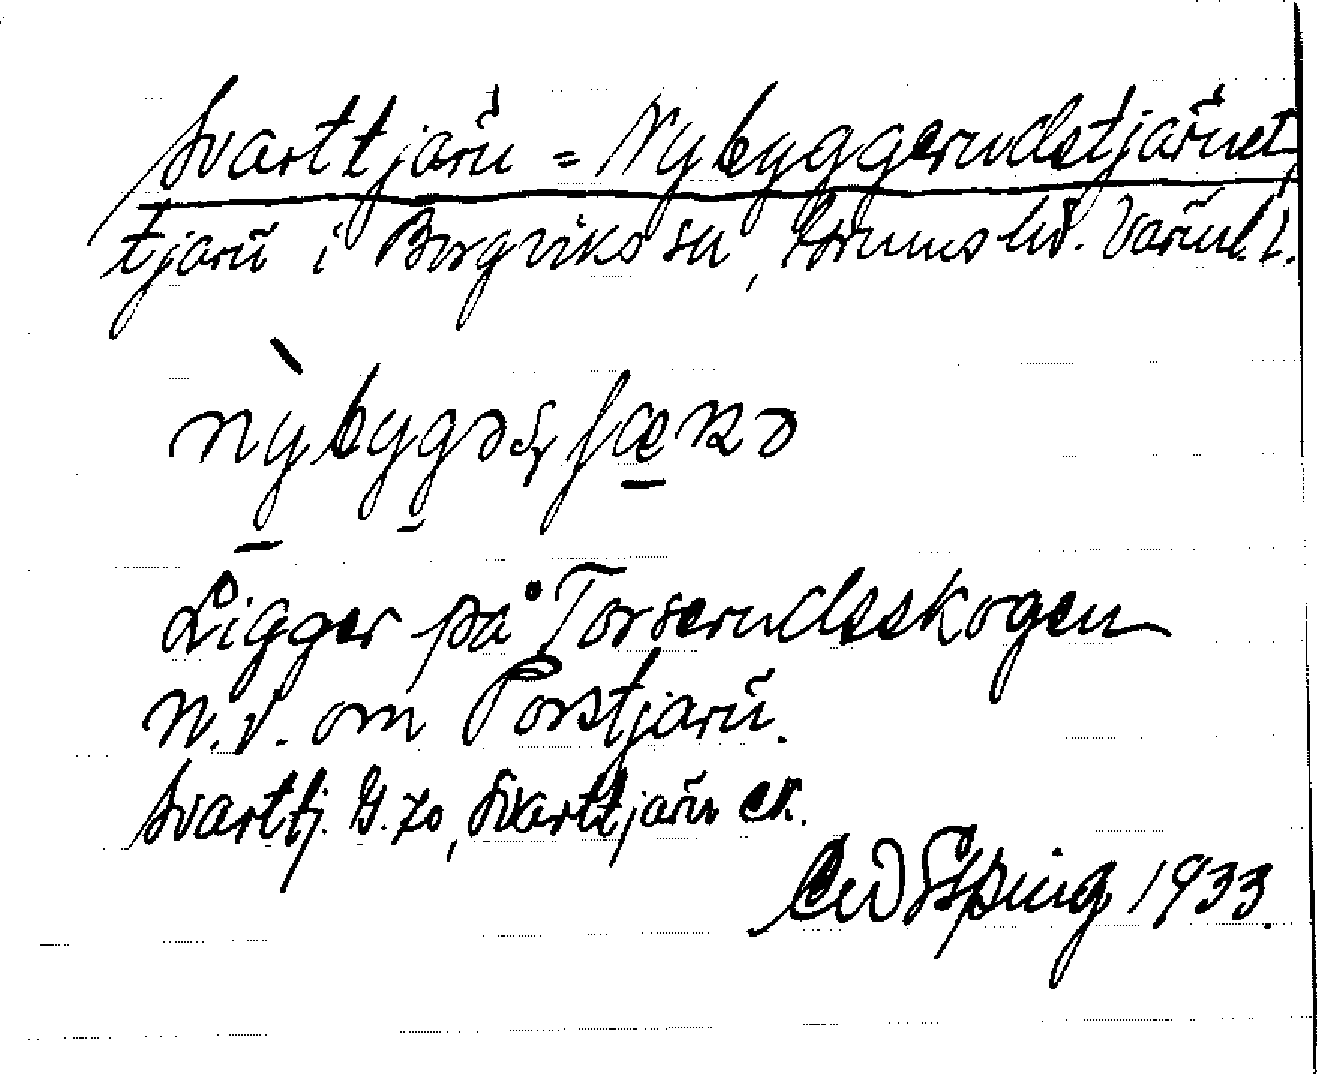 Svarttjärn = Nybyggerudstjärnet
tjärn i Borgviks sn, Grums hd. Värml. l.
Ligger på Torserudsskogen
N.V. om Porstjärn.
Svarttj. G. 70, Svarttjärn ek.
1933.